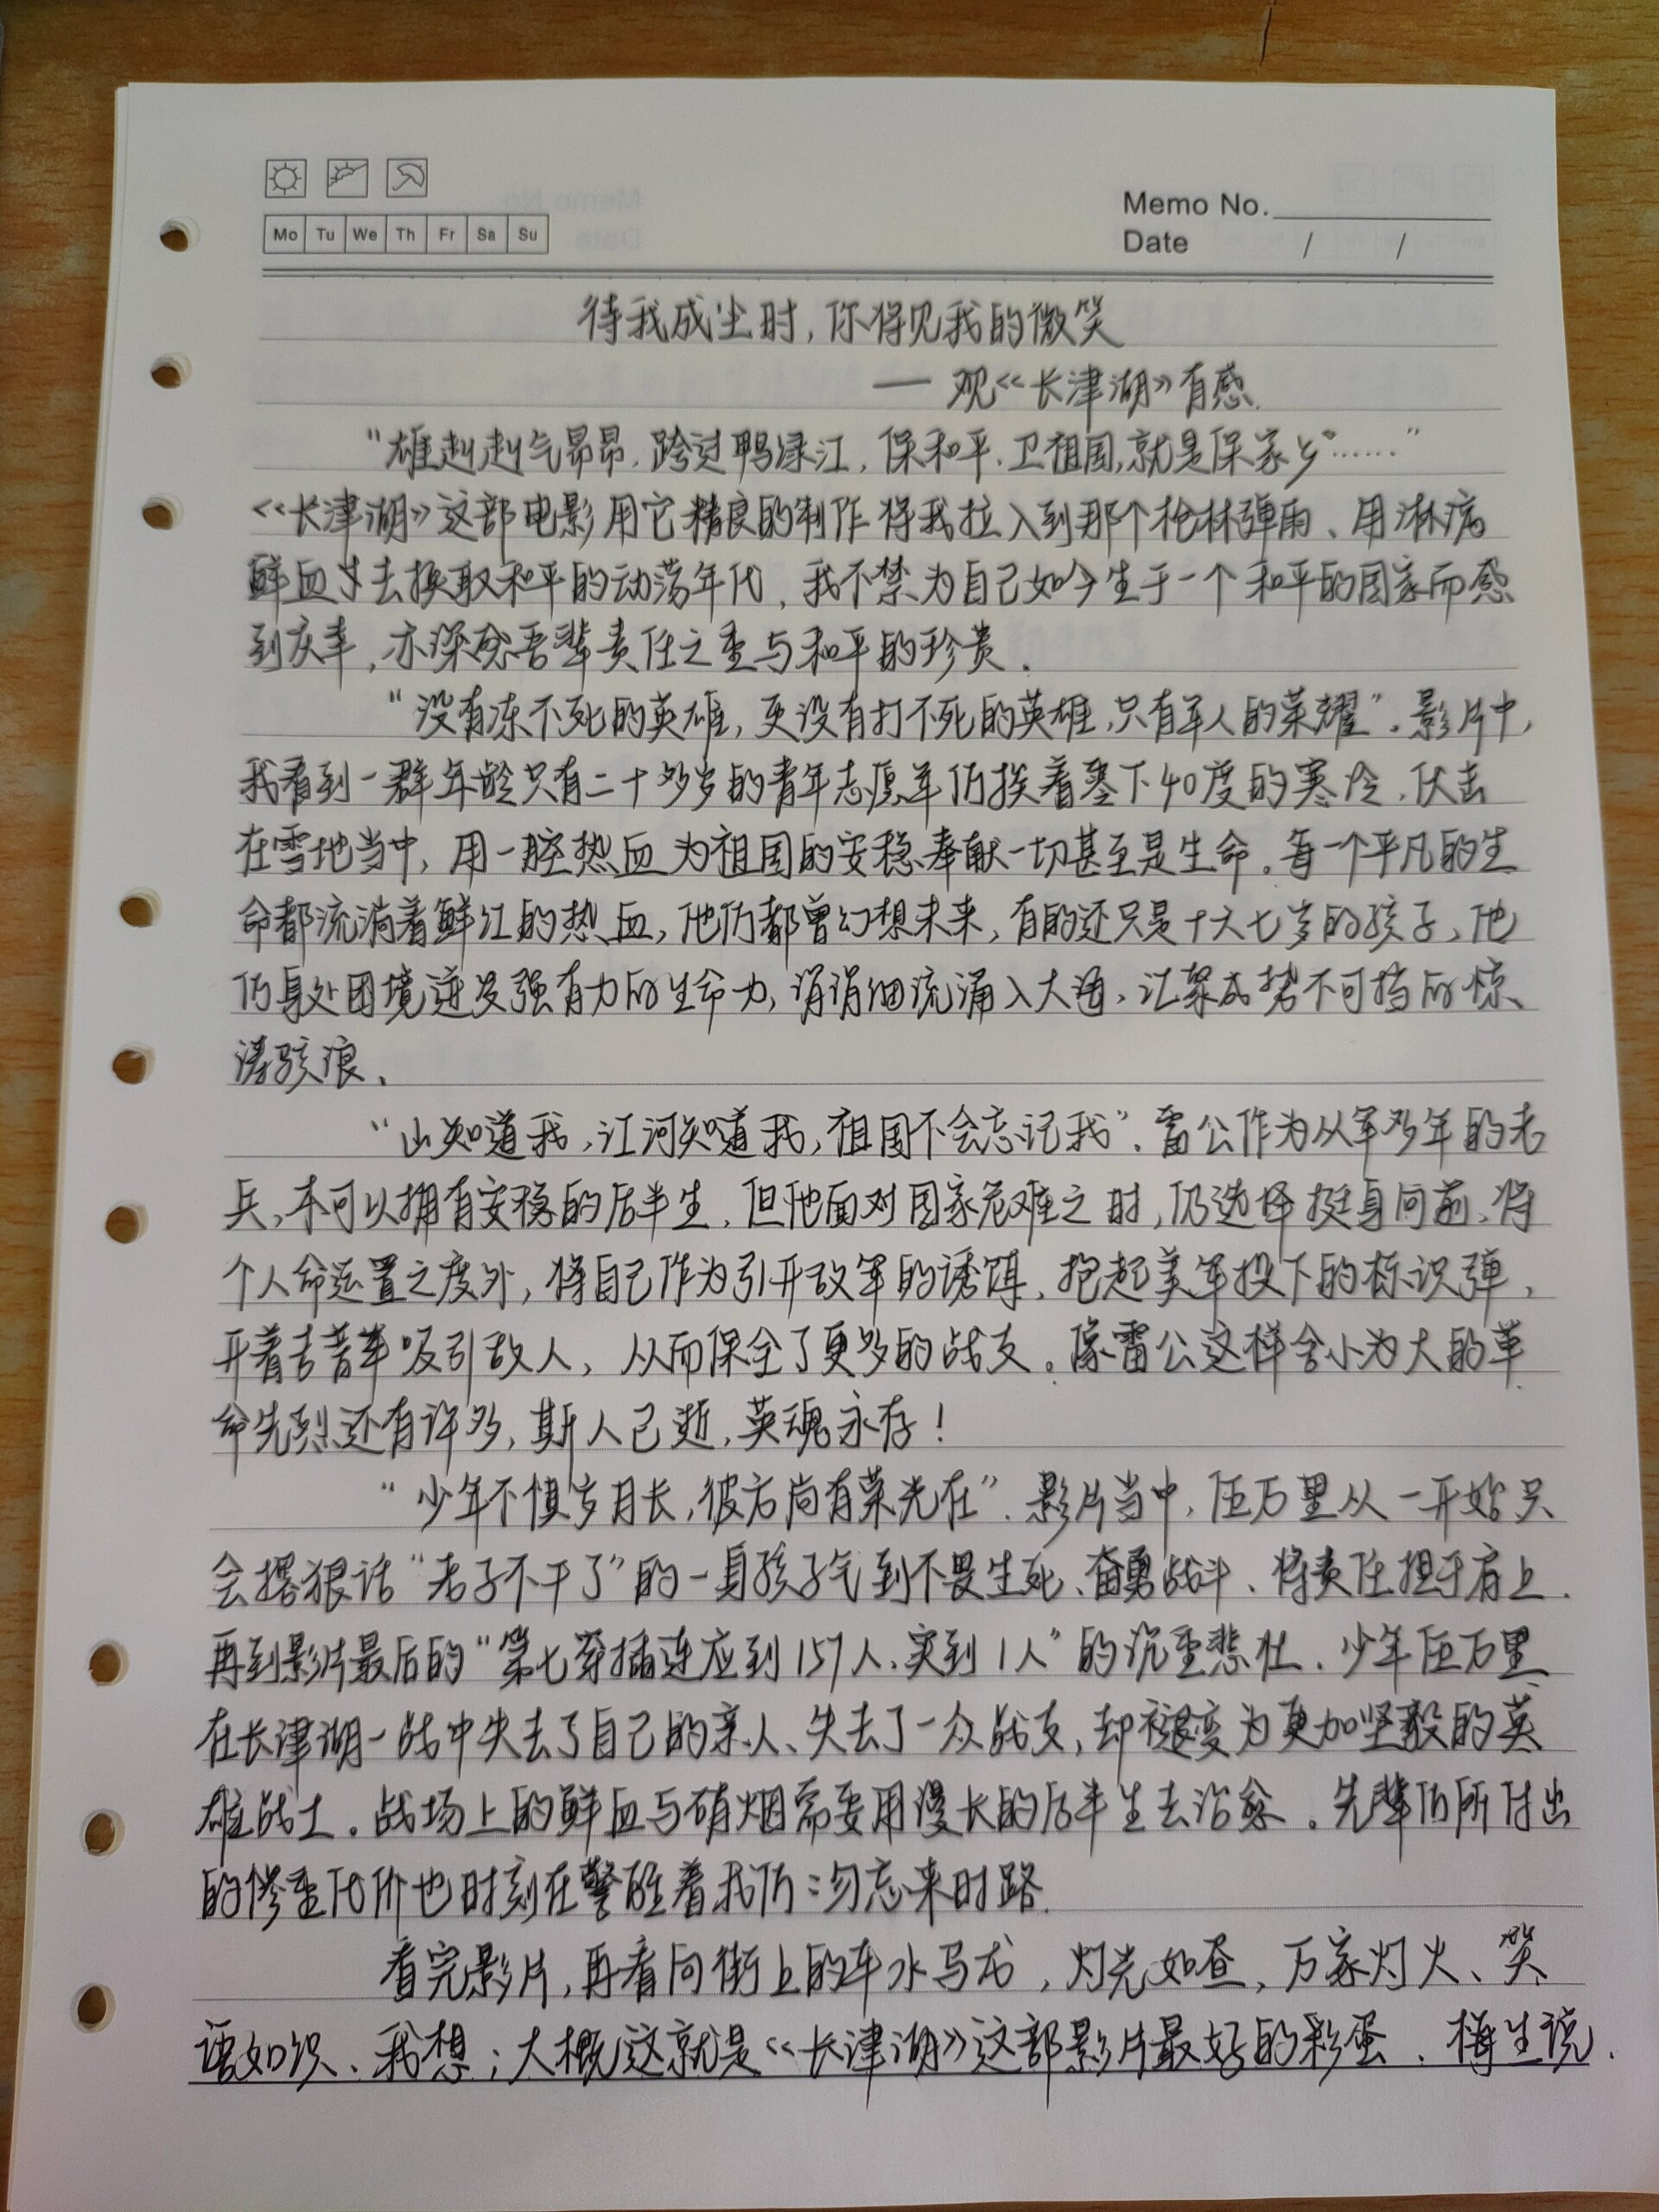 Mo Tu We Th Fr Sa Su
Memo No.
Date / /
待我成尘时,你将见我的微笑
— 观《长津湖》有感.
“雄赳赳气昂昂,跨过鸭绿江,保和平,卫祖国,就是保家乡……”
《长津湖》这部电影用它精良的制作将我拉入到那个枪林弹雨、用淋漓
鲜血才去换取和平的动荡年代,我不禁为自己如今生于一个和平的国家而感
到庆幸,亦深感吾辈责任之重与和平的珍贵.
“没有冻不死的英雄,更没有打不死的英雄,只有军人的荣耀”.影片中,
我看到一群年龄只有二十多岁的青年志愿军们挨着零下40度的寒冷,伏击
在雪地当中,用一腔热血为祖国的安稳奉献一切甚至是生命.每一个平凡的生
命都流淌着鲜红的热血,他们都曾幻想未来,有的还只是十六七岁的孩子,他
们身处困境迸发强有力的生命力,涓涓细流涌入大海,汇聚成势不可挡的惊
涛骇浪.
“山知道我,江河知道我,祖国不会忘记我”.雷公作为从军多年的老
兵,本可以拥有安稳的后半生,但他面对国家危难之时,仍选择挺身向前,将
个人命运置之度外,将自己作为引开敌军的诱饵,抱起美军投下的标识弹,
开着吉普车吸引敌人,从而保全了更多的战友.像雷公这样舍小为大的革
命先烈还有许多,斯人已逝,英魂永存!
“少年不惧岁月长,彼方尚有荣光在”.影片当中,伍万里从一开始只
会撂狠话“老子不干了”的一身孩子气到不畏生死、奋勇战斗、将责任担于肩上.
再到影片最后的“第七穿插连应到157人,实到1人”的沉重悲壮.少年伍万里
在长津湖一战中失去了自己的亲人、失去了一众战友,却褪变为更加坚毅的英
雄战士.战场上的鲜血与硝烟需要用漫长的后半生去治愈.先辈们所付出
的惨重代价也时刻在警醒着我们:勿忘来时路.
看完影片,再看向街上的车水马龙,灯光如昼,万家灯火、笑
语如织、我想;大概这就是《长津湖》这部影片最好的彩蛋.梅生说.